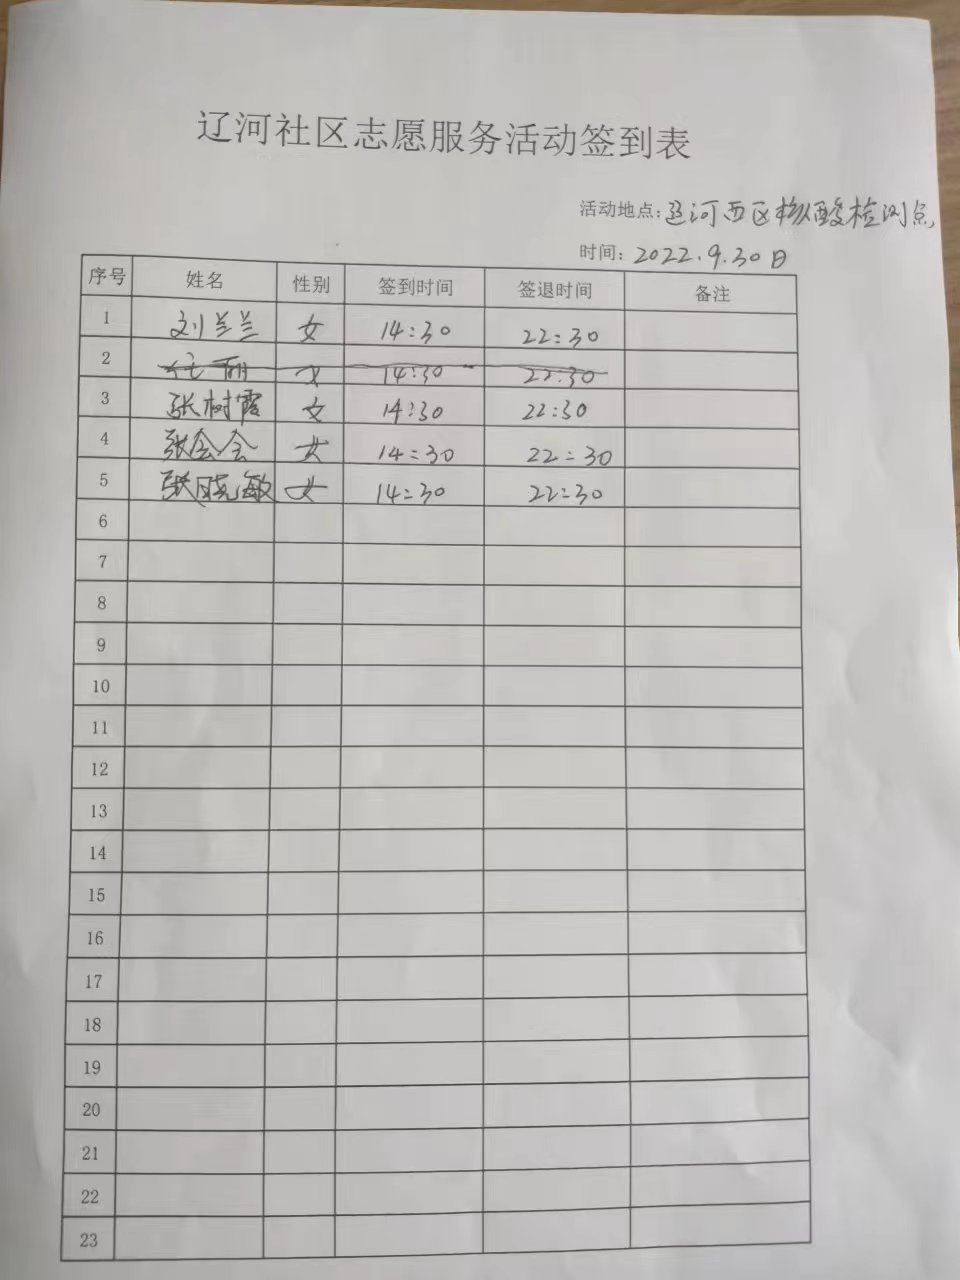 辽河社区志愿服务活动签到表
活动地点:辽河西区核酸检测点
时间: 2022.9.30日
序号 姓名 性别 签到时间 签退时间 备注
1 刘兰兰 女 14:30 22:30
2 任丽 女 14:30 22:30
3 张树霞 女 14:30 22:30
4 张会会 女 14:30 22:30
5 张晓敏 女 14:30 22:30
6
7
8
9
10
11
12
13
14
15
16
17
18
19
20
21
22
23